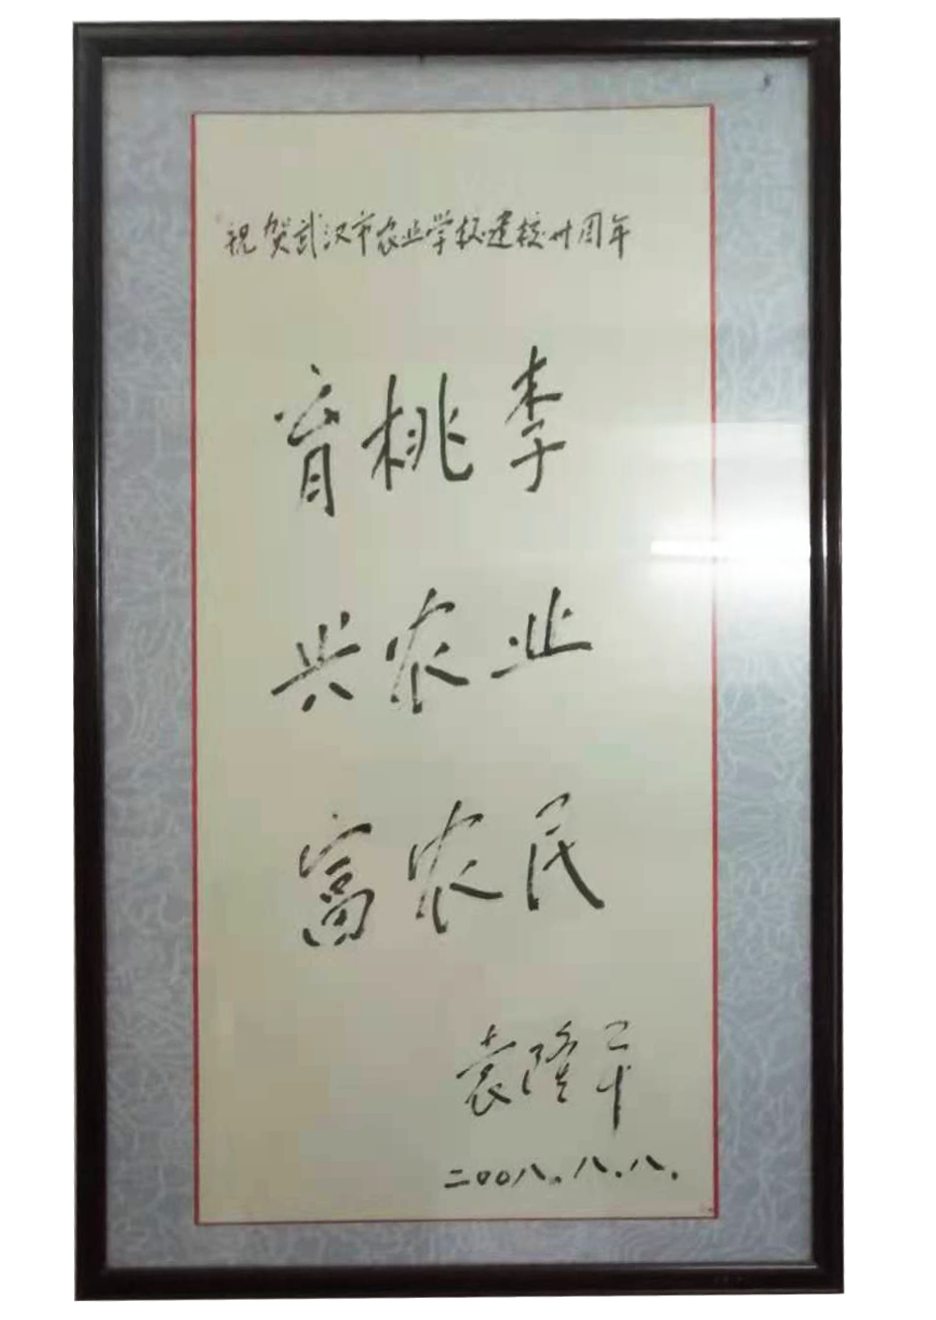 祝贺武汉市农业学校建校卅周年
育桃李
兴农业
富农民
袁隆平
二00八.八.八.